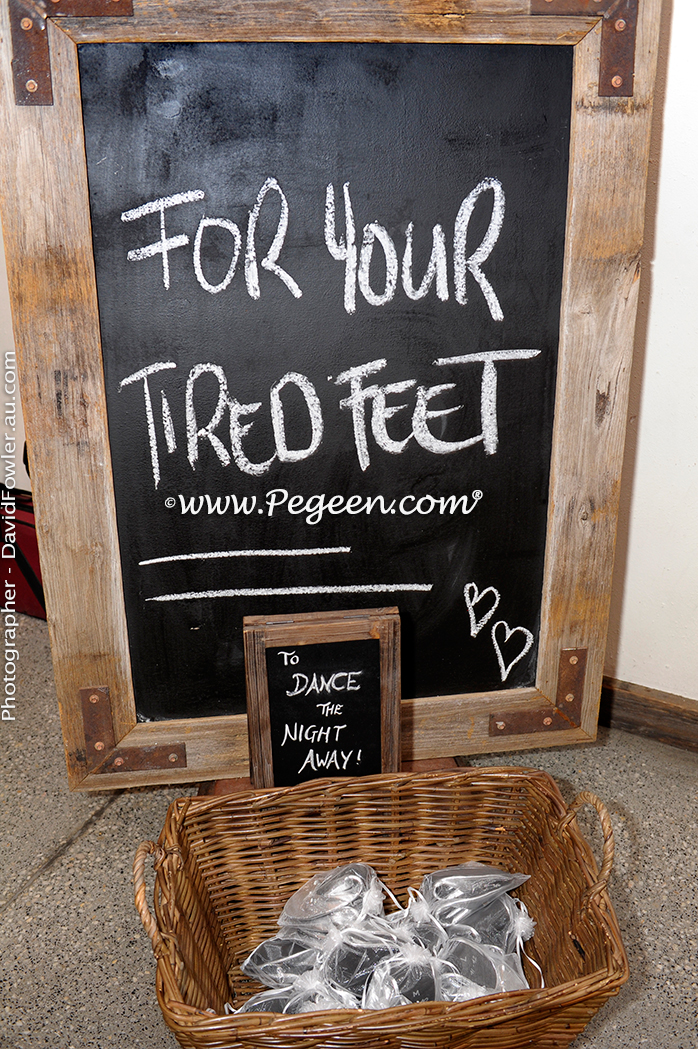 FOR YOUR
TIRED FEET
©www.Pegeen.com®
TO
DANCE
THE
NIGHT
AWAY!
Photographer - DavidFowler.au.com